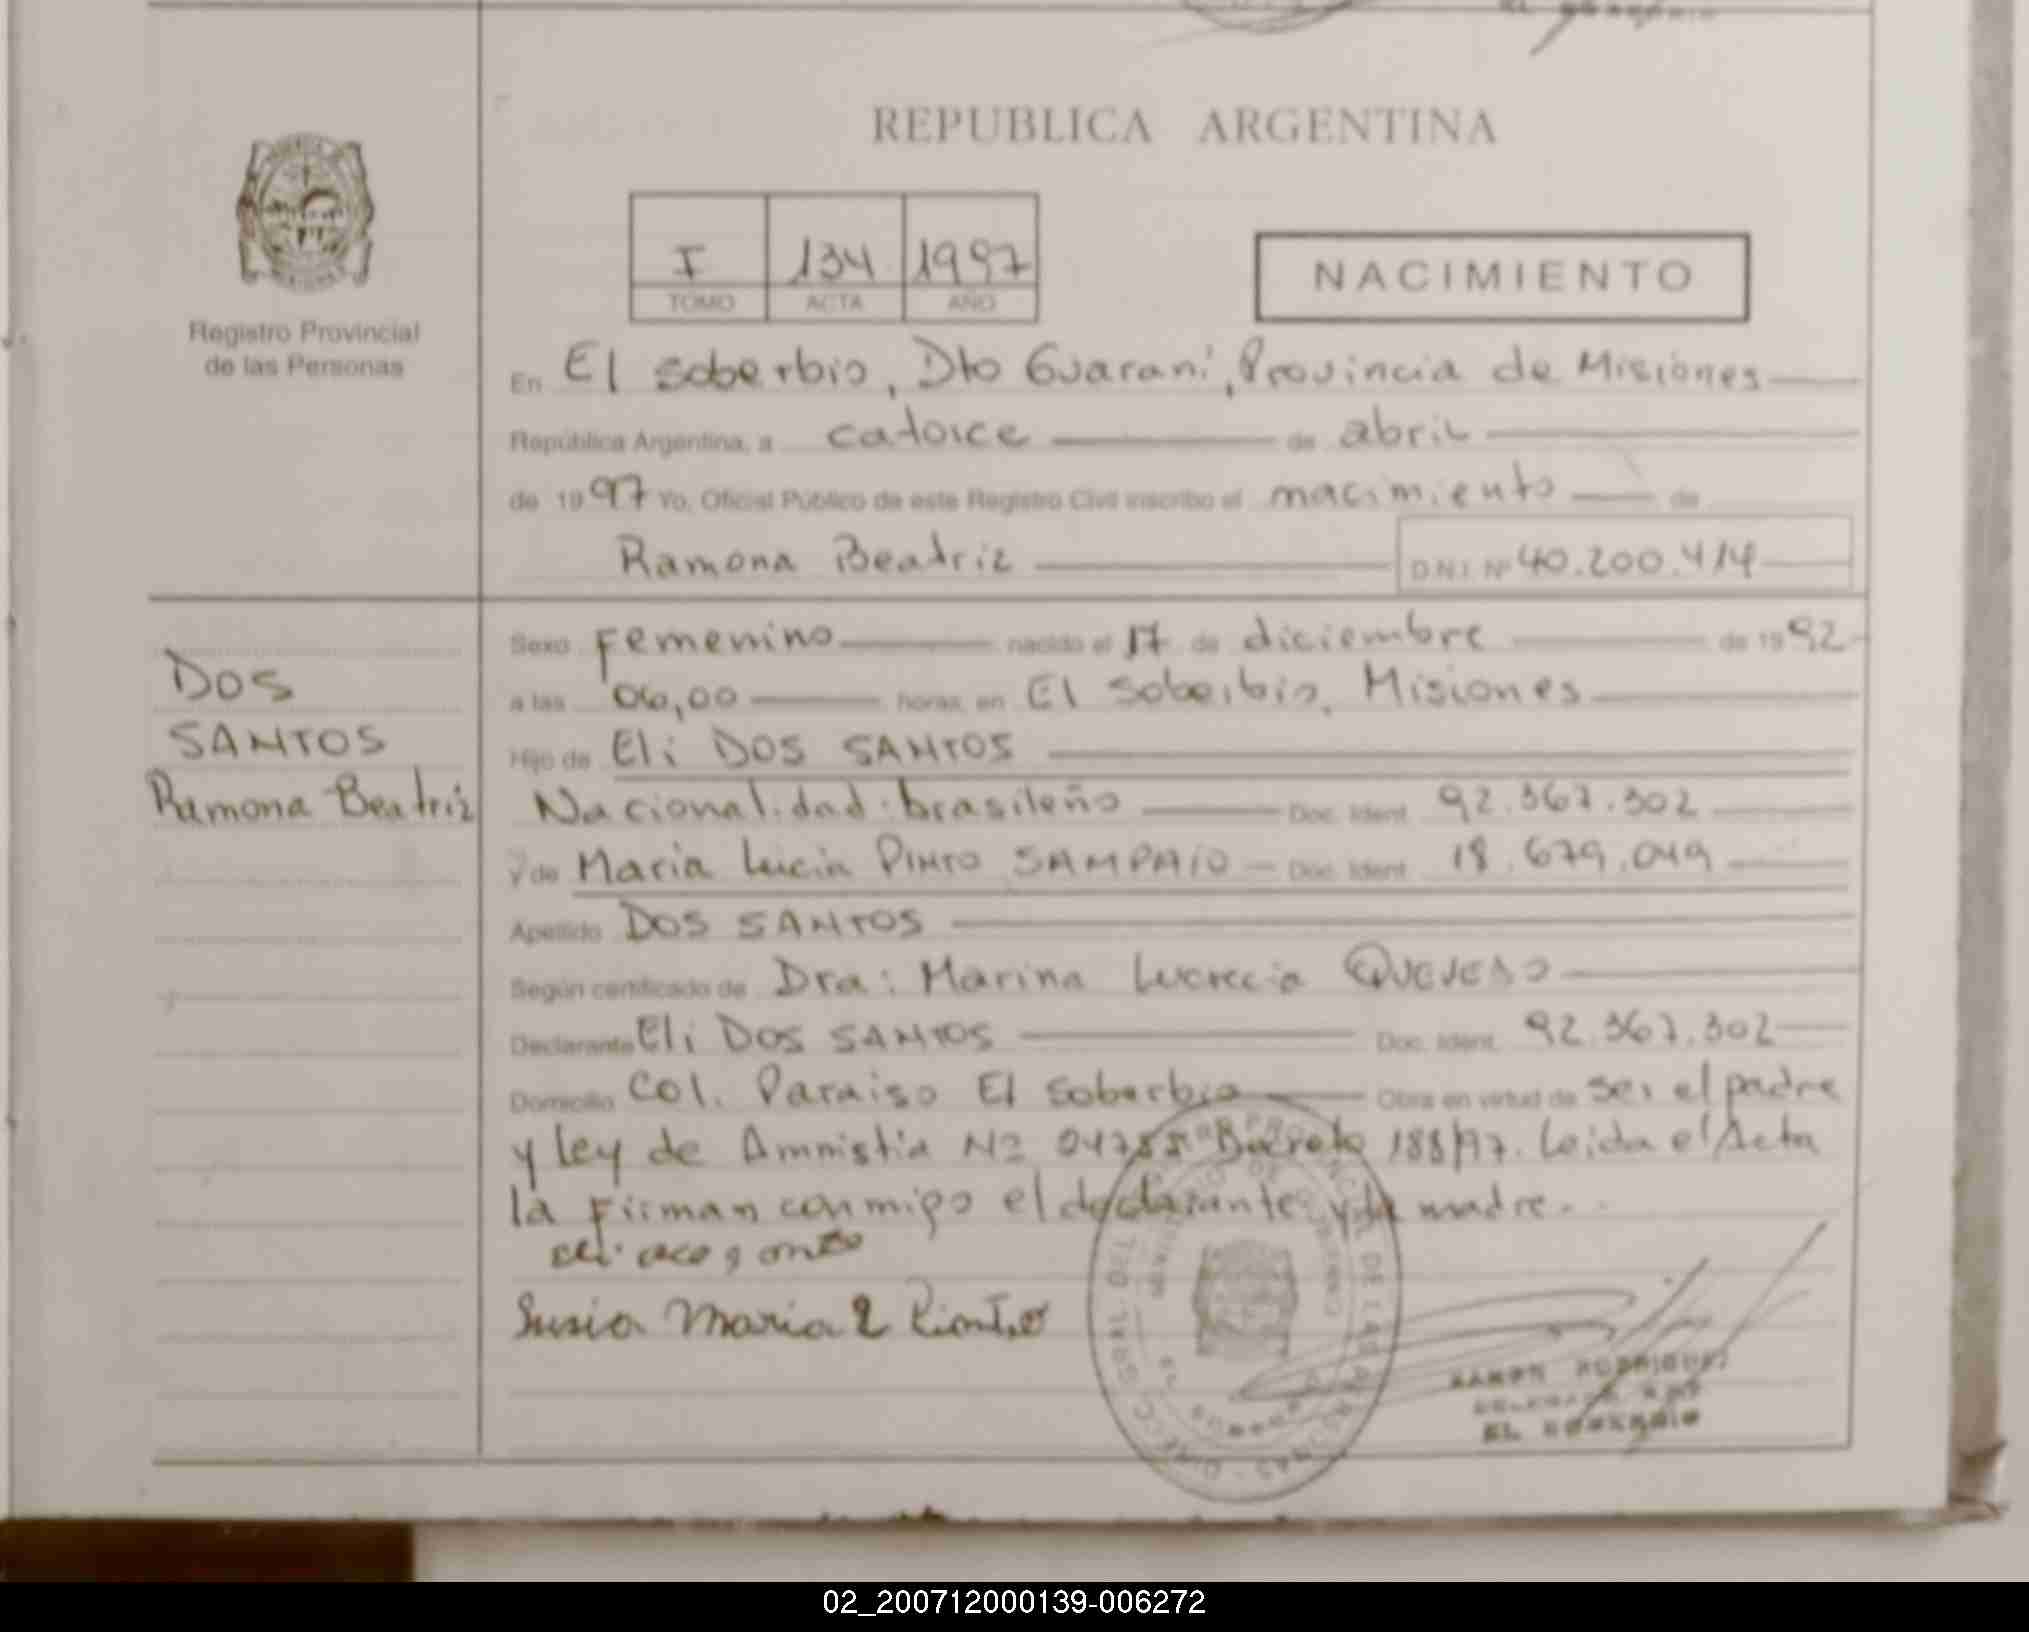 REPUBLICA ARGENTINA
I 134 1997
TOMO ACTA AÑO
NACIMIENTO
Registro Provincial
de las Personas
En El Soberbio, Dto Guaraní, Provincia de Misiones
República Argentina, a catorce de abril
de 1997 Yo, Oficial Público de este Registro Civil inscribo el nacimiento de
Ramona Beatriz D.N.I. Nº 40.200.414
DOS
SANTOS
Ramona Beatriz
Sexo Femenino nacido el 17 de diciembre de 1992
a las 06,00 horas, en El Soberbio, Misiones
Hijo de Eli DOS SANTOS
Nacionalidad: brasileño Doc. Ident. 92.367.302
y de Maria Lucia PINTO SAMPAIO Doc. Ident. 18.679.049
Apellido DOS SANTOS
Según certificado de Dra: Marina Lucrecia QUEVEDO
Declarante Eli DOS SANTOS Doc. Ident. 92.367.302
Domicilio Col. Paraiso El Soberbio Obra en virtud de ser el padre
y ley de Amnistia Nº Decreto 188/97. Leida el Acta
la firman conmigo el declarante y la madre.
Maria
RAMON RODRIGUEZ
EL SOBERBIO
02_200712000139-006272